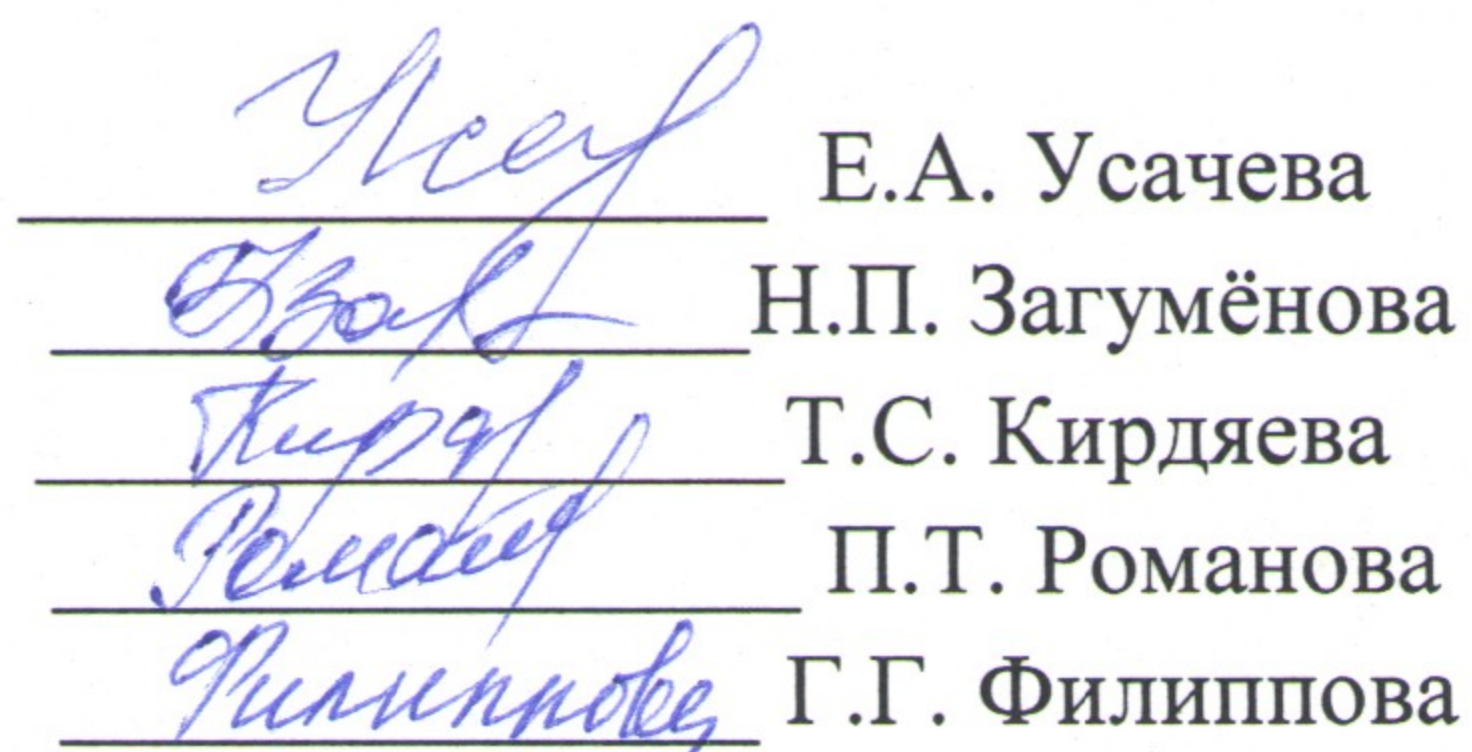 Усач Е.А. Усачева
Н.П. Загумёнова
Кирд Т.С. Кирдяева
Роман П.Т. Романова
Филиппова Г.Г. Филиппова